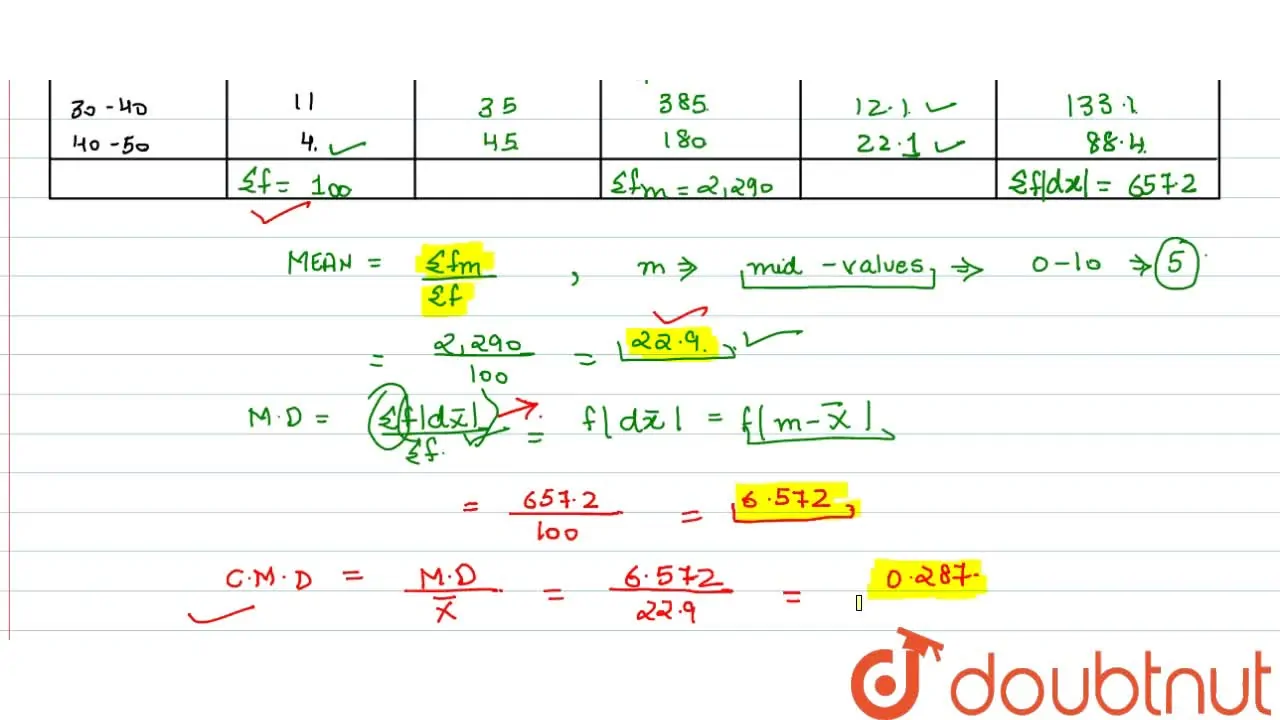 30-40 11 35 385 12.1 133.1
40-50 4. 45 180 22.1 88.4
Σf = 100 Σfm = 2,290 Σf|dx| = 657.2
MEAN = Σfm / Σf , m ⇒ mid-values ⇒ 0-10 ⇒ 5
= 2,290 / 100 = 22.9.
M.D = Σf|dx̄| / Σf. = f|dx̄| = f|m-X̄|
= 657.2 / 100 = 6.572
C.M.D = M.D / X̄ = 6.572 / 22.9 = 0.287.
doubtnut